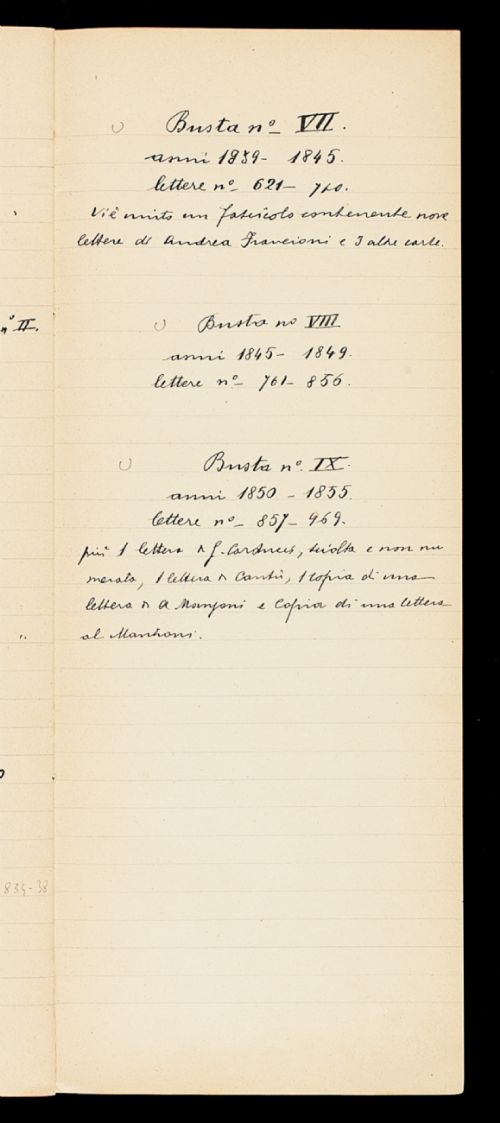 Busta nº VII.
anni 1839- 1845.
lettere nº- 621- 760.
Vi è unito un fascicolo contenente nove
lettere di Andrea Francioni e 3 altre carte.
nº II.
Busta nº VIII
anni 1845- 1849.
lettere nº- 761- 856.
Busta nº. IX.
anni 1850 - 1855.
lettere nº- 857- 969.
più 1 lettera di G. Carducci, sciolta e non nu
merata, 1 lettera di Cantù, 1 copia di una
lettera di A Manzoni e Copia di una lettera
al Manzoni.
834-38